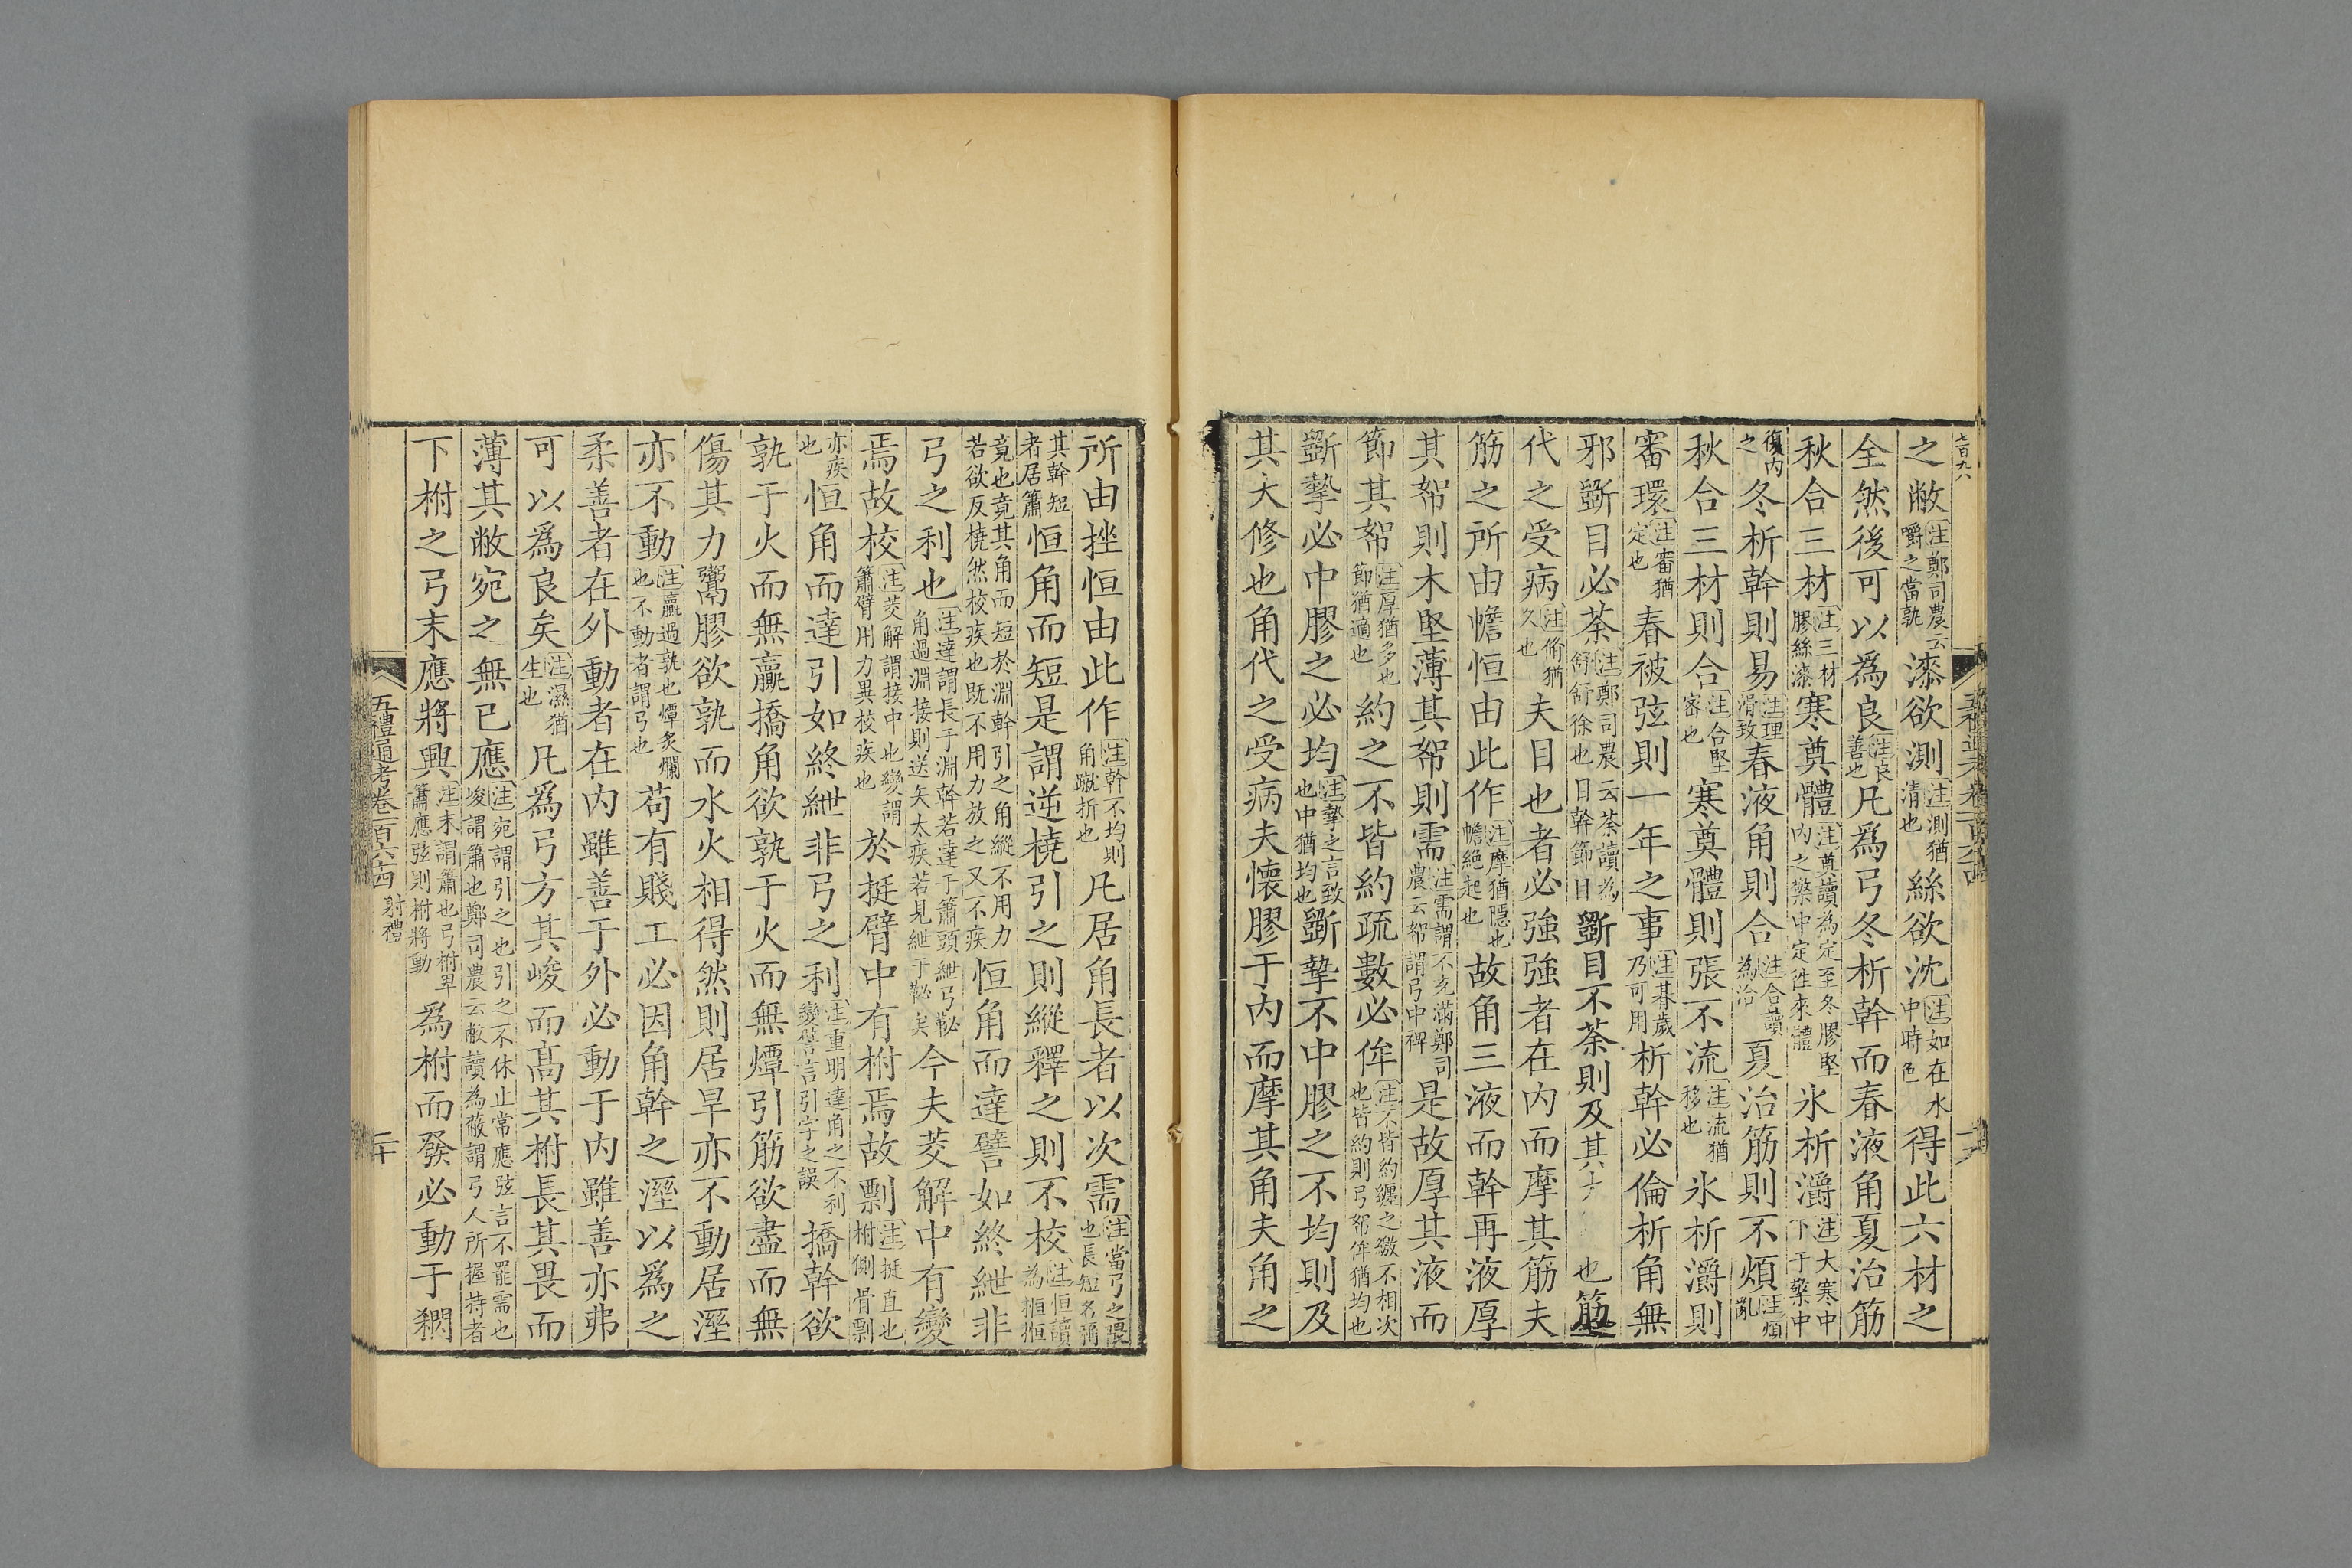 之敝注鄭司農云嚼之當孰漆欲測注測猶清也絲欲沈注如在水中時色得此六材之
全然後可以爲良注良善也凡爲弓冬析幹而春液角夏治筋
秋合三材注三材膠絲漆寒奠體注奠讀為定至冬膠堅內之檠中定徃來體氷析灂注大寒中下于檠中
復內之冬析幹則易注理滑致春液角則合注合讀為洽夏治筋則不煩注煩亂
秋合三材則合注合堅密也寒奠體則張不流注流猶移也氷析灂則
審環注審猶定也春被弦則一年之事注朞歲乃可用析幹必倫析角無
邪斲目必荼注鄭司農云荼讀為舒舒徐也目幹節目斲目不荼則及其大也筋
代之受病注脩猶久也夫目也者必強強者在內而摩其筋夫
筋之所由幨恒由此作注摩猶隱也幨絕起也故角三液而幹再液厚
其帤則木堅薄其帤則需注需謂不充滿鄭司農云帤謂弓中裨是故厚其液而
節其帤注厚猶多也節猶適也約之不皆約疏數必侔注不皆約纏之繳不相次也皆約則弓帤侔猶均也
斲摯必中膠之必均注摯之言致也中猶均也斲摯不中膠之不均則及
其大修也角代之受病夫懷膠于內而摩其角夫角之
所由挫恒由此作注幹不均則角蹴折也凡居角長者以次需注當弓之隈也長短名稱
其幹短者居簫恒角而短是謂逆橈引之則縱釋之則不校注恒讀為搄搄
竟也竟其角而短於淵幹引之角縱不用力若欲反橈然校疾也既不用力放之又不疾恒角而達譬如終紲非
弓之利也注達謂長于淵幹若達于簫頭紲弓䪐角過淵接則送矢太疾若見紲于䪐矣今夫茭解中有變
焉故校注茭解謂接中也變謂簫臂用力異校疾也於挺臂中有柎焉故剽注挺直也柎側骨剽
亦疾也恒角而達引如終紲非弓之利注重明達角之不利變譬言引字之誤撟幹欲
孰于火而無贏撟角欲孰于火而無燂引筋欲盡而無
傷其力鬻膠欲孰而水火相得然則居旱亦不動居溼
亦不動注贏過孰也燂炙爛也不動者謂弓也苟有賤工必因角幹之溼以為之
柔善者在外動者在內雖善于外必動于內雖善亦弗
可以爲良矣注濕猶生也凡為弓方其峻而高其柎長其畏而
薄其敝宛之無已應注宛謂引之也引之不休止常應弦言不罷需也峻謂簫也鄭司農云敝讀為蔽謂弓人所握持者
下柎之弓末應將興注末謂簫也弓柎卑簫應弦則柎將動為柎而發必動于䦼
五禮通考卷一百六十四 射禮
二十